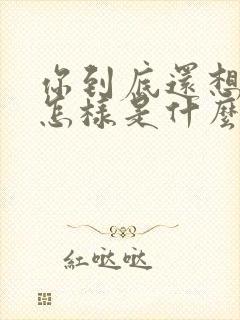 你到底還想
怎樣是什麼
紅哒哒